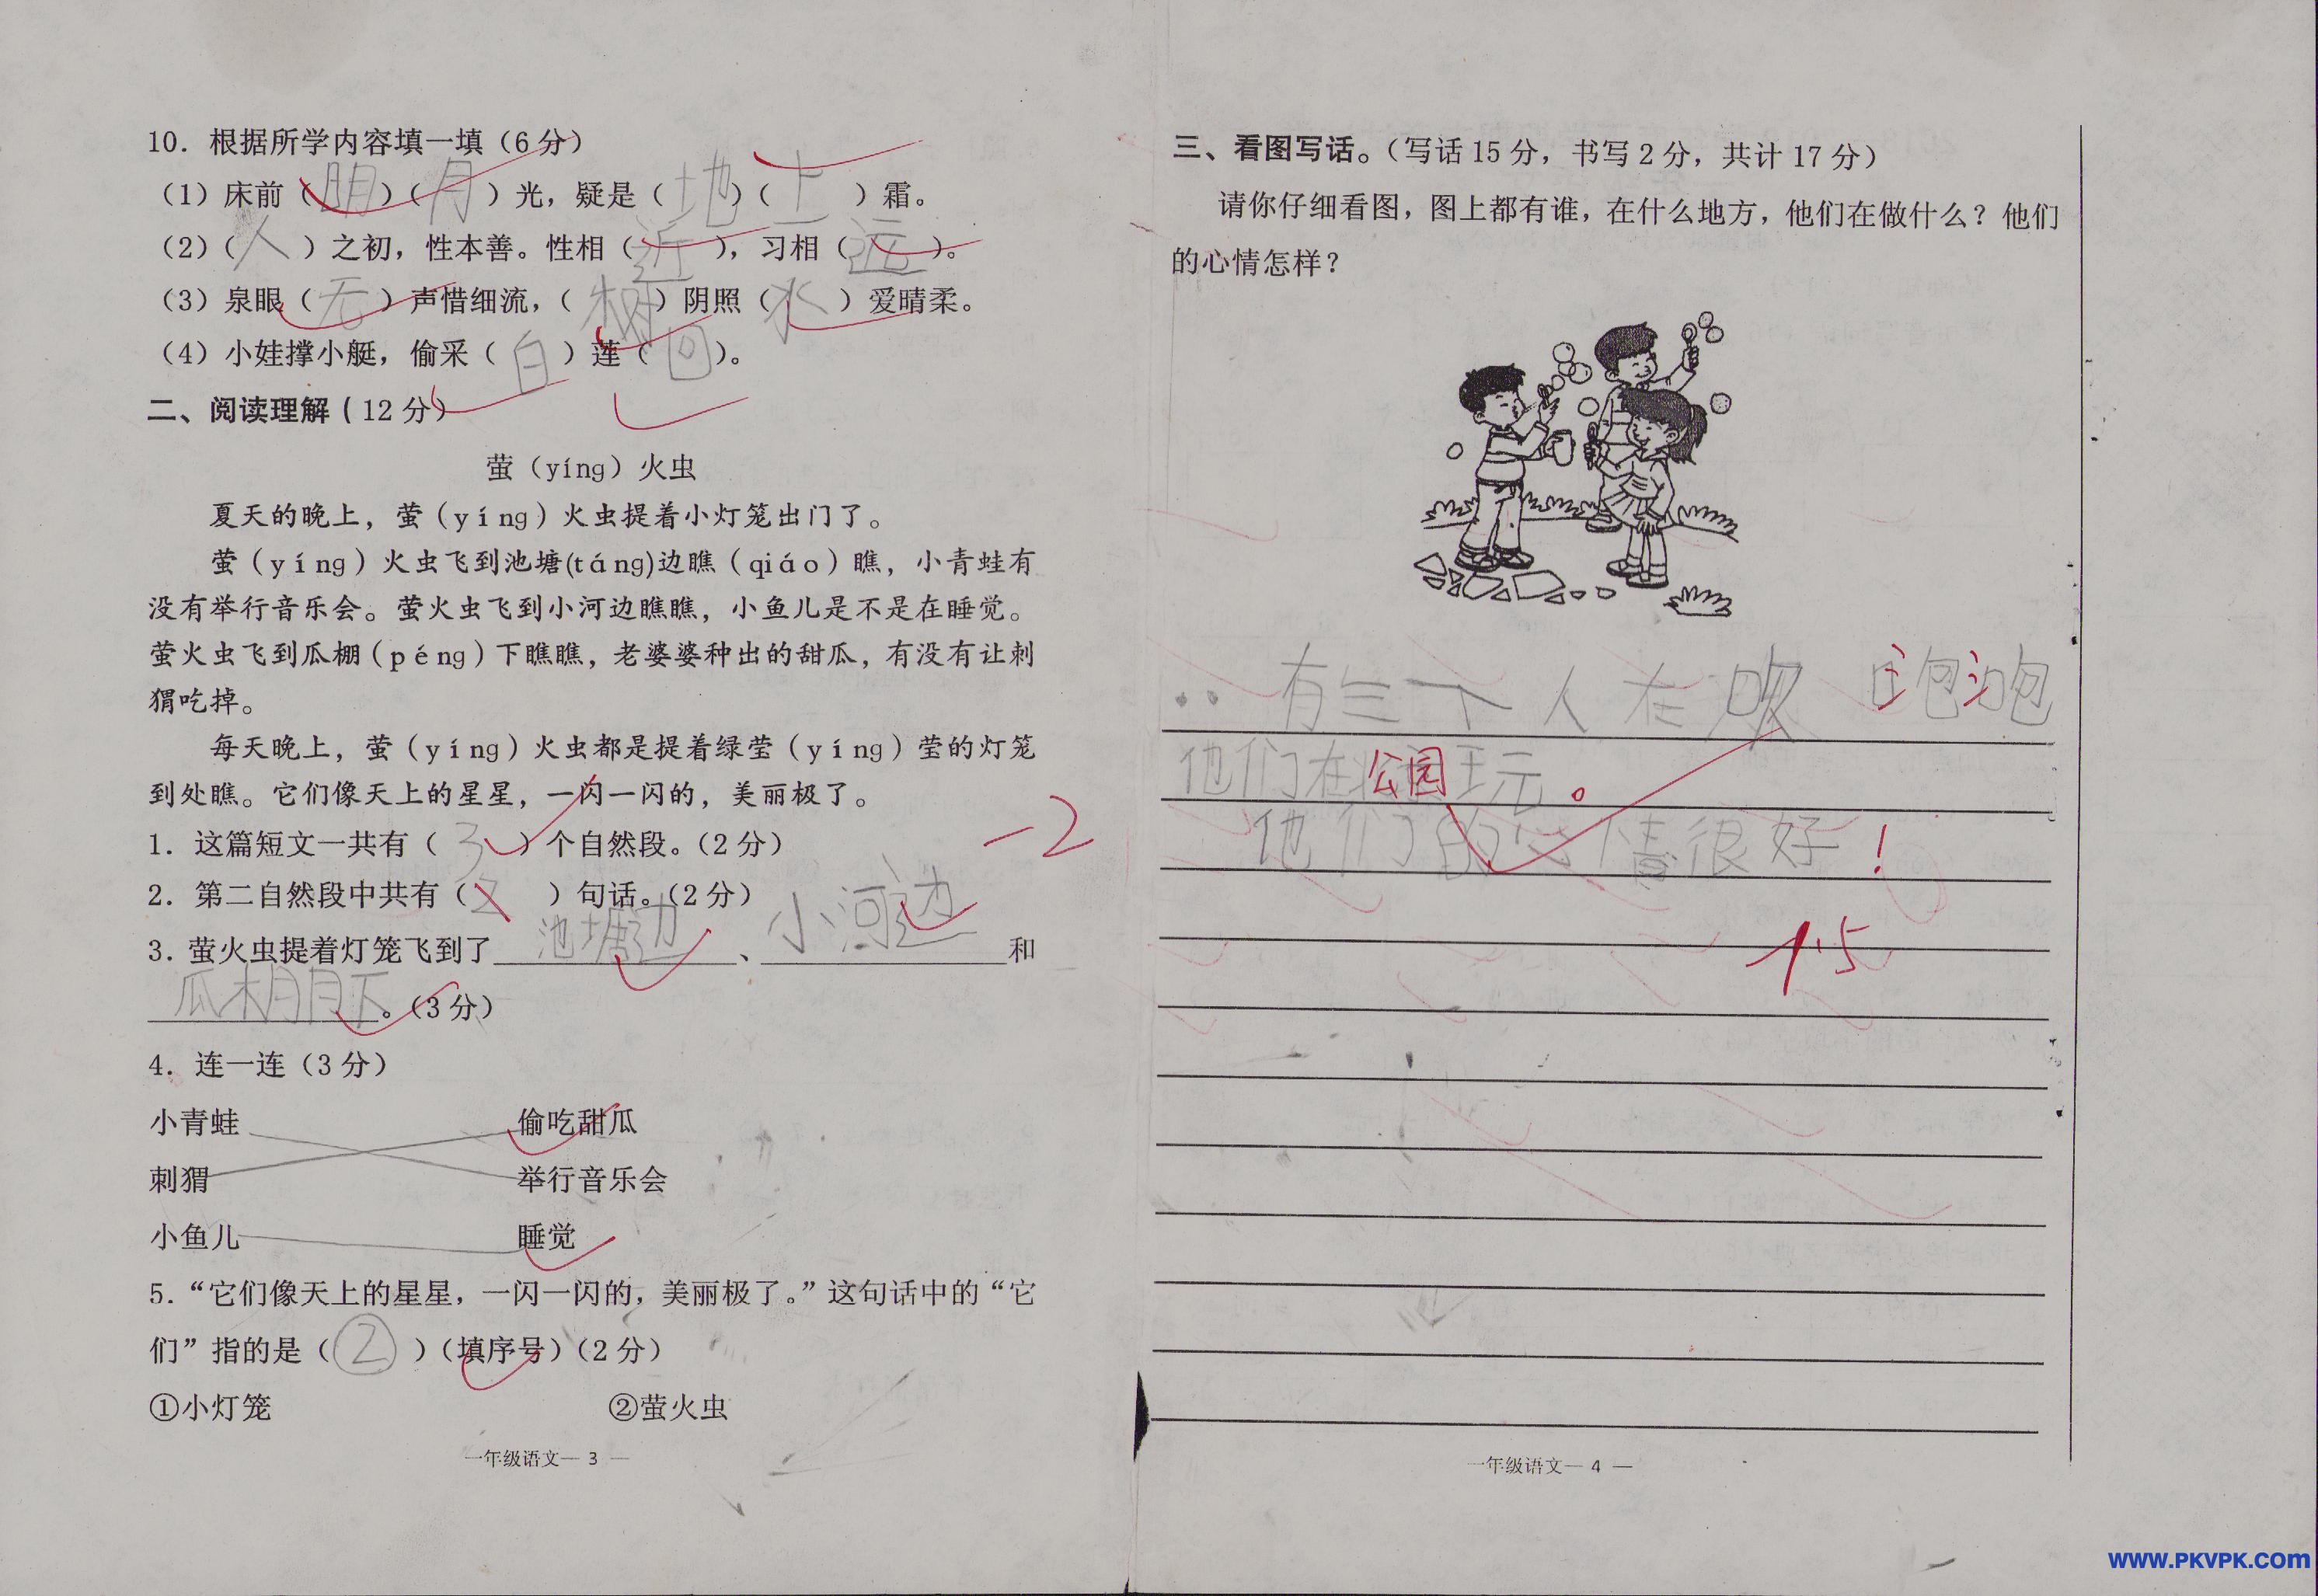 10. 根据所学内容填一填（6分）
（1）床前（明）（月）光，疑是（地）（上）霜。
（2）（人）之初，性本善。性相（近），习相（远）。
（3）泉眼（无）声惜细流，（树）阴照（水）爱晴柔。
（4）小娃撑小艇，偷采（白）莲（回）。
二、阅读理解（12分）
萤（yíng）火虫
夏天的晚上，萤（yíng）火虫提着小灯笼出门了。
萤（yíng）火虫飞到池塘(táng)边瞧（qiáo）瞧，小青蛙有
没有举行音乐会。萤火虫飞到小河边瞧瞧，小鱼儿是不是在睡觉。
萤火虫飞到瓜棚（péng）下瞧瞧，老婆婆种出的甜瓜，有没有让刺
猬吃掉。
每天晚上，萤（yíng）火虫都是提着绿莹（yíng）莹的灯笼
到处瞧。它们像天上的星星，一闪一闪的，美丽极了。
1. 这篇短文一共有（3）个自然段。（2分）
-2
2. 第二自然段中共有（2）句话。（2分）
3. 萤火虫提着灯笼飞到了池塘边、小河边和
瓜棚下。（3分）
4. 连一连（3分）
小青蛙 偷吃甜瓜
刺猬 举行音乐会
小鱼儿 睡觉
5. “它们像天上的星星，一闪一闪的，美丽极了。”这句话中的“它
们”指的是（②）（填序号）（2分）
①小灯笼 ②萤火虫
一年级语文— 3 —
三、看图写话。（写话15分，书写2分，共计17分）
请你仔细看图，图上都有谁，在什么地方，他们在做什么？他们
的心情怎样？
有三个人在吹泡泡
他们在公园玩。
他们的心情很好！
15
一年级语文— 4 —
www.PKVPK.com